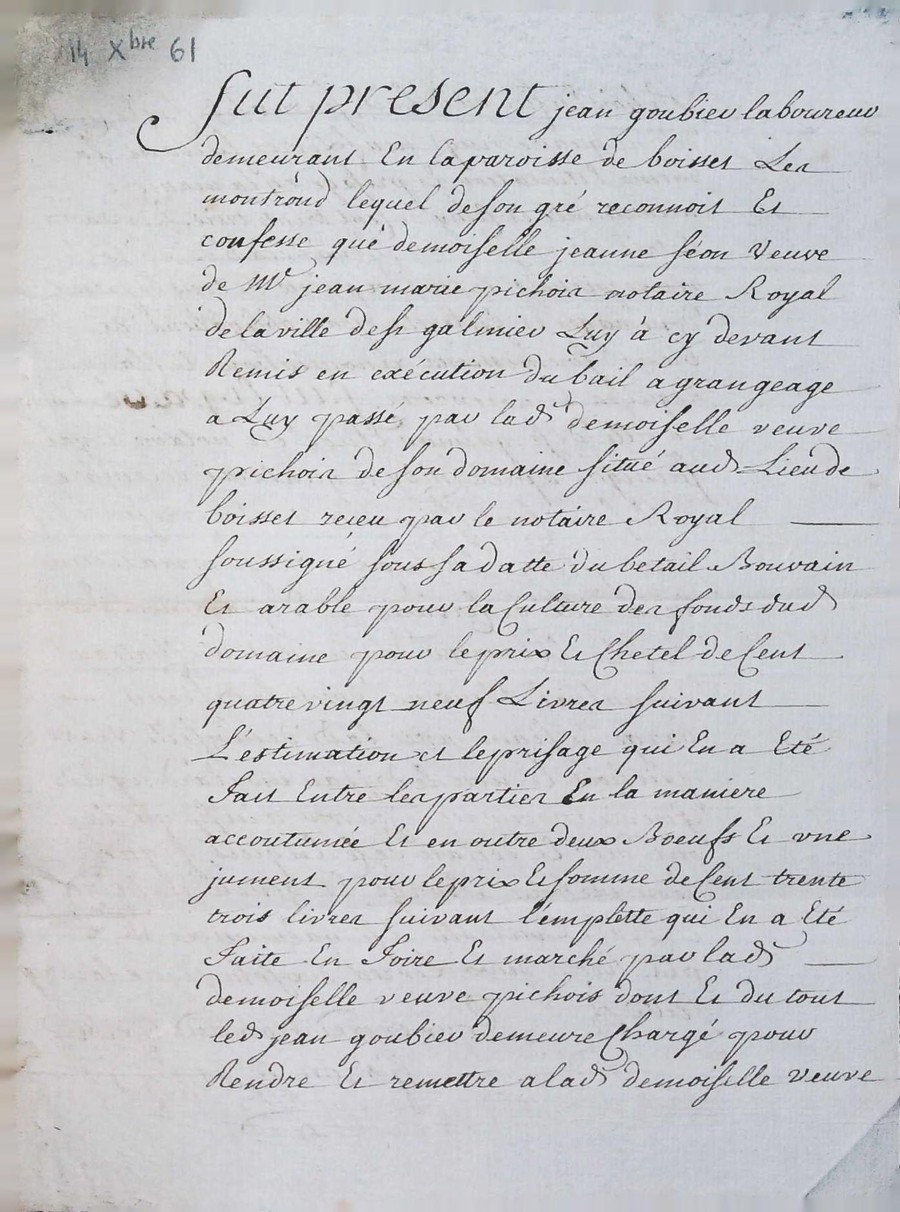 14 Xbre 61
fut present jean goubier laboureur
demeurant En la paroisse de boisset Les
montrond lequel de son gré reconnoit Et
confesse que demoiselle jeanne féon Veuve
de Mr jean marie pichois notaire Royal
de la ville de st galmier Luy à cy devant
Remis en exécution du bail a grangeage
a Luy passé par lad demoiselle veuve
pichois de son domaine situé aud Lieu de
boisset receu par le notaire Royal
soussigné sous sa datte du betail Bouvain
Et arable pour la Culture des fonds dud
domaine pour le prix Et Chetel de Cent
quatre vingt neuf Livres suivant
L'estimation et le prisage qui En a Eté
fait Entre les parties En la maniere
accoutumée Et en outre deux Boeufs Et vne
jument pour le prix Et somme de Cent trente
trois livres suivant l'emplette qui En a Eté
faite En foire Et marché par lad
demoiselle veuve pichois dont Et du tout
led jean goubier demeure Chargé pour
Rendre Et remettre a lad demoiselle veuve